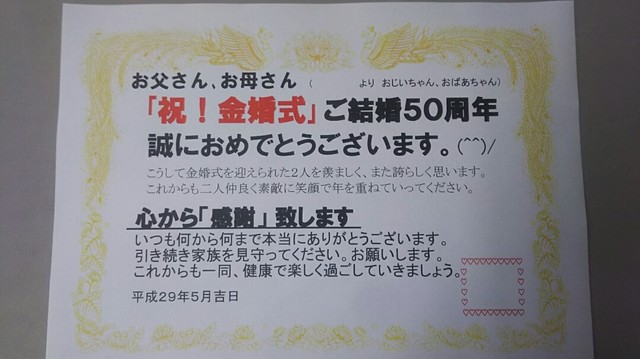 お父さん、お母さん ( より おじいちゃん、おばあちゃん)
「祝！金婚式」ご結婚５０周年
誠におめでとうございます。(^^)/
こうして金婚式を迎えられた２人を羨ましく、また誇らしく思います。
これからも二人仲良く素敵に笑顔で年を重ねていってください。
心から「感謝」致します
いつも何から何まで本当にありがとうございます。
引き続き家族を見守ってください。お願いします。
これからも一同、健康で楽しく過ごしていきましょう。
平成２９年５月吉日